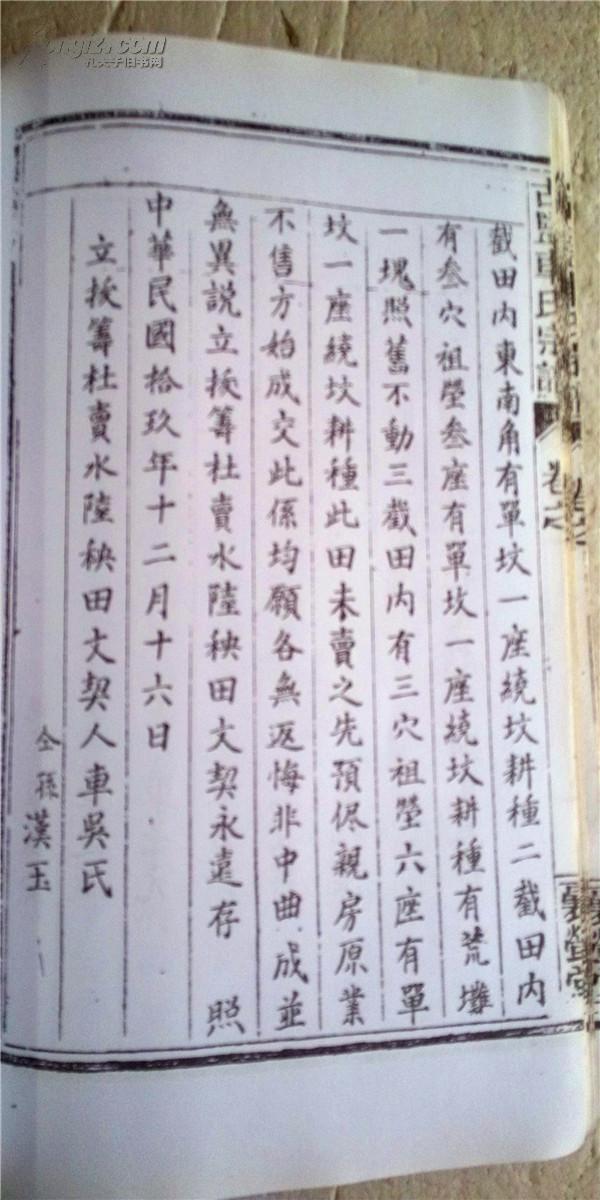 孔夫子旧书网
車氏宗譜
卷之
截田内東南角有單坟一座繞坟耕種二截田内
有叁穴祖塋叁座有單坟一座繞坟耕種有荒墩
一塊照舊不動三截田内有三穴祖塋六座有單
坟一座繞坟耕種此田未賣之先預侭親房原業
不售方始成交此係均願各無返悔非中曲成並
無異説立挨籌杜賣水陸秧田文契永遠存 照
中華民國拾玖年十二月十六日
立挨籌杜賣水陸秧田文契人車吳氏
仝孫漢玉